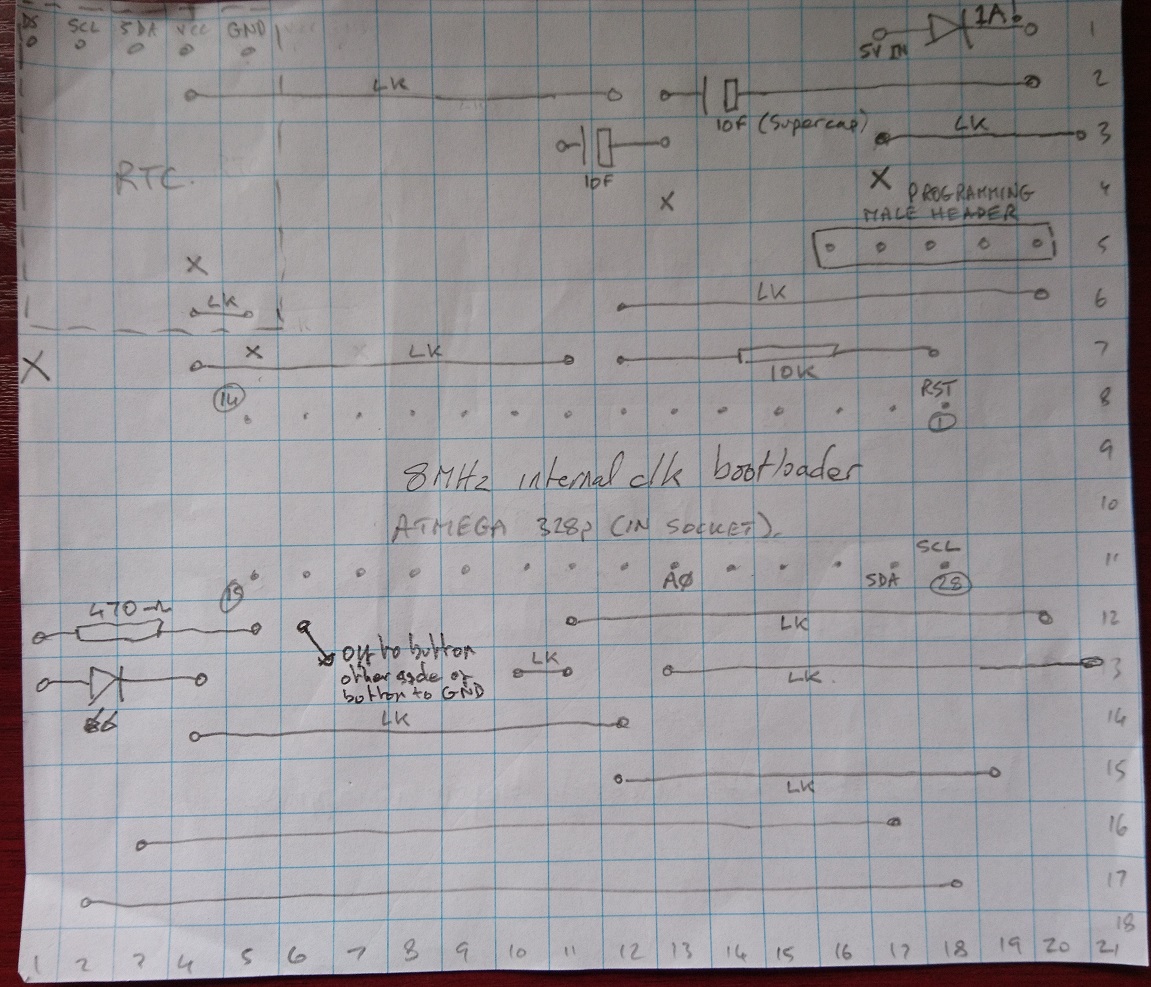 SCL SDA VCC GND 1A! 1
5V IN
LK 2
10F (Supercap) LK 3
10F
RTC. X X 4
PROGRAMMING
MALE HEADER
5
X
LK LK 6
X X LK 10K 7
14 RST 8
1
8MHz internal clk bootloader 9
ATMEGA 328p (IN SOCKET). 10
SCL 11
AØ SDA 28
470Ω LK 12
on to button LK LK. 13
other side of
button to GND
LK 14
LK 15
16
17
18
1 2 3 4 5 6 7 8 9 10 11 12 13 14 15 16 17 18 19 20 21